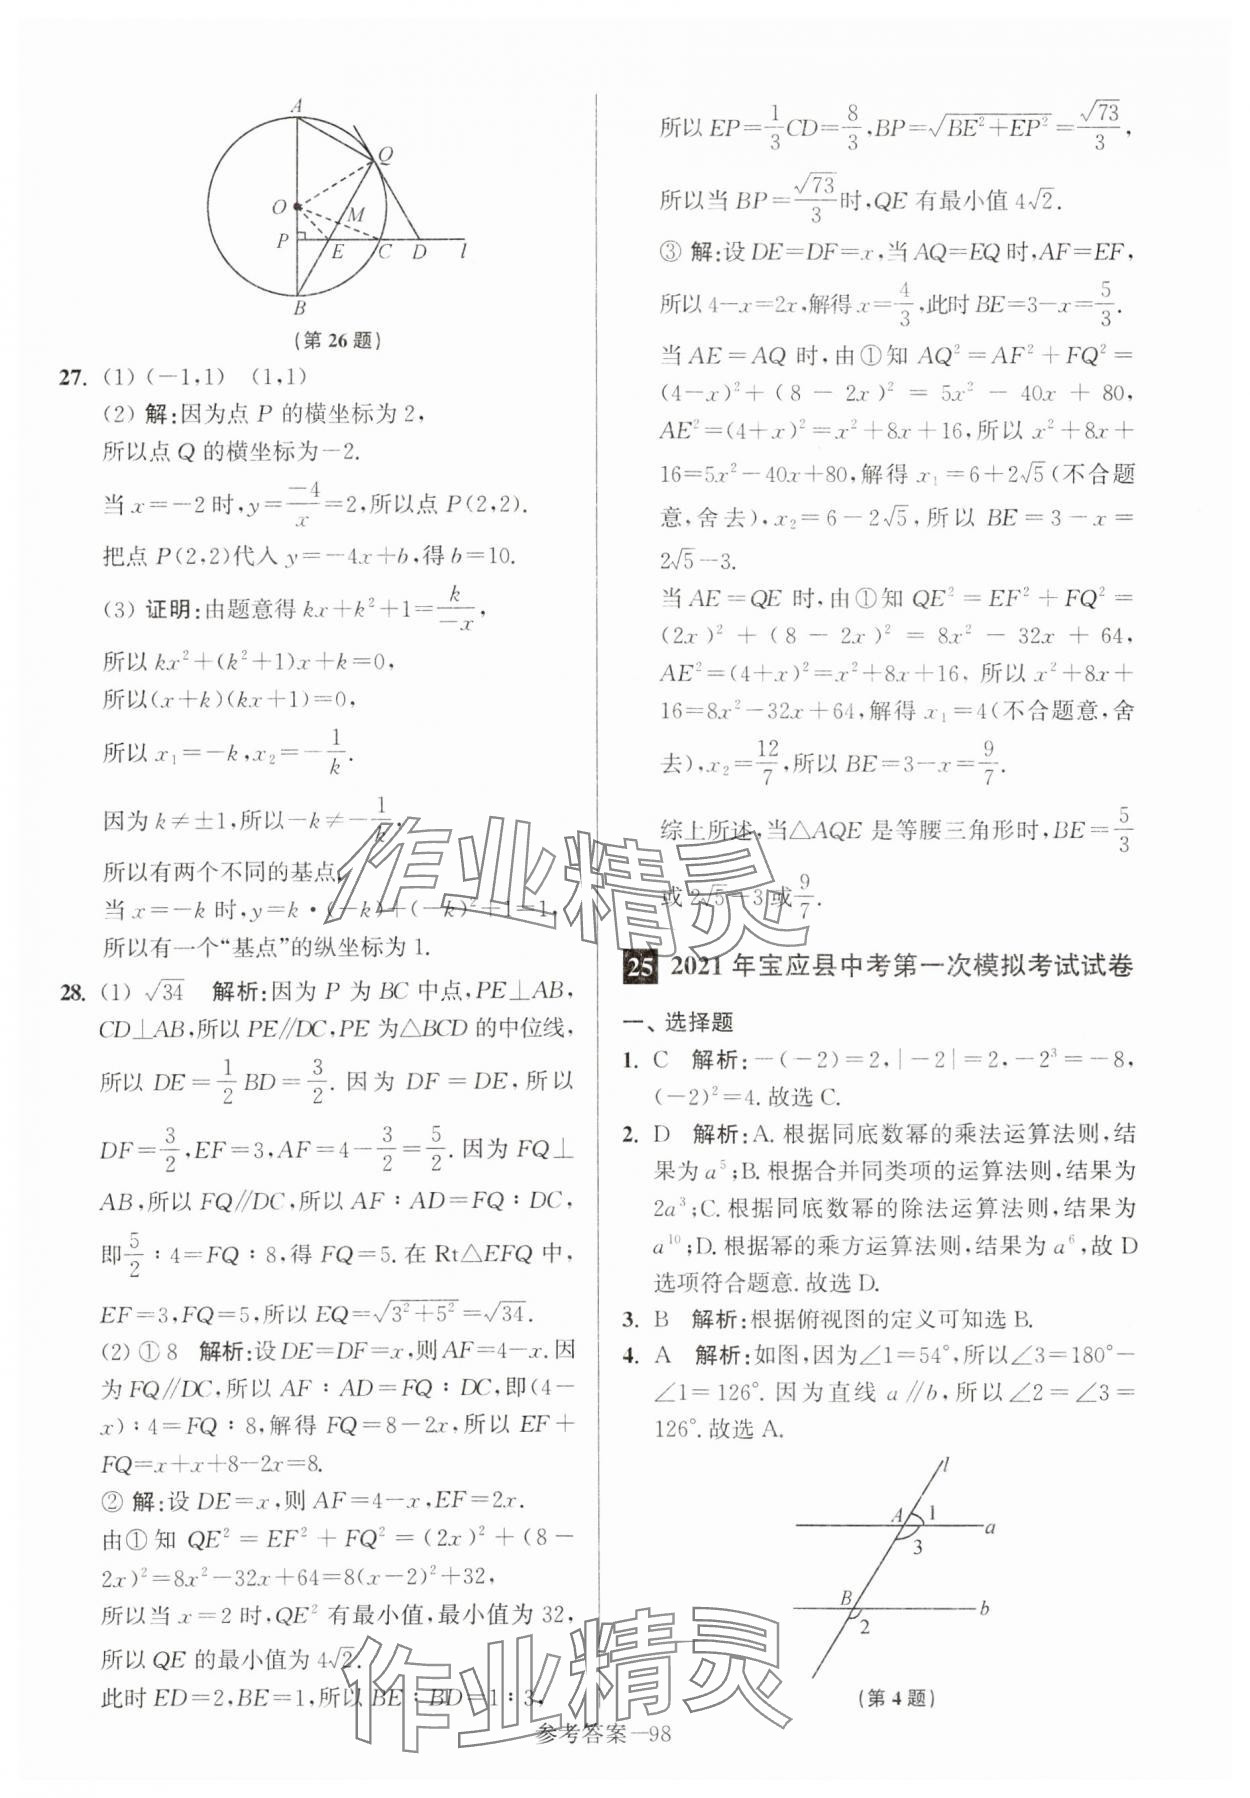 A
Q
O
M
P
E
C
D
l
B
(第 26 题)
27. (1) (−1,1) (1,1)
(2) 解:因为点 P 的横坐标为 2,
所以点 Q 的横坐标为−2.
当 x=−2 时,y=−4/x=2,所以点 P(2,2).
把点 P(2,2)代入 y=−4x+b,得 b=10.
(3) 证明:由题意得 kx+k²+1=k/−x,
所以 kx²+(k²+1)x+k=0,
所以(x+k)(kx+1)=0,
所以 x₁=−k,x₂=−1/k.
因为 k≠±1,所以−k≠−1/k,
所以有两个不同的基点,
当 x=−k 时,y=k·(−k)+(−k)²+1=1,
所以有一个“基点”的纵坐标为 1.
28. (1) √34 解析:因为 P 为 BC 中点,PE⊥AB,
CD⊥AB,所以 PE∥DC,PE 为△BCD 的中位线,
所以 DE=1/2 BD=3/2. 因为 DF=DE,所以
DF=3/2,EF=3,AF=4−3/2=5/2.因为 FQ⊥
AB,所以 FQ∥DC,所以 AF∶AD=FQ∶DC,
即5/2∶4=FQ∶8,得 FQ=5.在 Rt△EFQ 中,
EF=3,FQ=5,所以 EQ=√(3²+5²)=√34.
(2) ① 8 解析:设DE=DF=x,则AF=4−x.因
为 FQ∥DC,所以 AF∶AD=FQ∶DC,即(4−
x)∶4=FQ∶8,解得 FQ=8−2x,所以 EF+
FQ=x+x+8−2x=8.
② 解:设 DE=x,则 AF=4−x,EF=2x.
由①知 QE²=EF²+FQ²=(2x)²+(8−
2x)²=8x²−32x+64=8(x−2)²+32,
所以当 x=2 时,QE² 有最小值,最小值为 32,
所以 QE 的最小值为 4√2.
此时 ED=2,BE=1,所以 BE∶BD=1∶3,
所以 EP=1/3 CD=8/3,BP=√(BE²+EP²)=√73/3,
所以当 BP=√73/3时,QE 有最小值 4√2.
③ 解:设 DE=DF=x,当 AQ=EQ 时,AF=EF,
所以 4−x=2x,解得 x=4/3,此时 BE=3−x=5/3.
当 AE=AQ 时,由①知 AQ²=AF²+FQ²=
(4−x)²+(8−2x)²=5x²−40x+80,
AE²=(4+x)²=x²+8x+16,所以 x²+8x+
16=5x²−40x+80,解得 x₁=6+2√5(不合题
意,舍去),x₂=6−2√5,所以 BE=3−x=
2√5−3.
当 AE=QE 时,由①知 QE²=EF²+FQ²=
(2x)²+(8−2x)²=8x²−32x+64,
AE²=(4+x)²=x²+8x+16, 所以 x²+8x+
16=8x²−32x+64,解得 x₁=4(不合题意,舍
去),x₂=12/7,所以 BE=3−x=9/7.
综上所述,当△AQE 是等腰三角形时,BE=5/3
或 2√5−3 或9/7.
25 2021 年宝应县中考第一次模拟考试试卷
一、选择题
1. C 解析:−(−2)=2,|−2|=2,−2³=−8,
(−2)²=4.故选 C.
2. D 解析:A.根据同底数幂的乘法运算法则,结
果为 a⁵;B.根据合并同类项的运算法则,结果为
2a³;C.根据同底数幂的除法运算法则,结果为
a¹⁰;D.根据幂的乘方运算法则,结果为 a⁶,故 D
选项符合题意.故选 D.
3. B 解析:根据俯视图的定义可知选 B.
4. A 解析:如图,因为∠1=54°,所以∠3=180°−
∠1=126°.因为直线 a∥b,所以∠2=∠3=
126°.故选 A.
l
A
1
a
3
B
b
2
(第 4 题)
作业精灵
作业精灵
参考答案—98